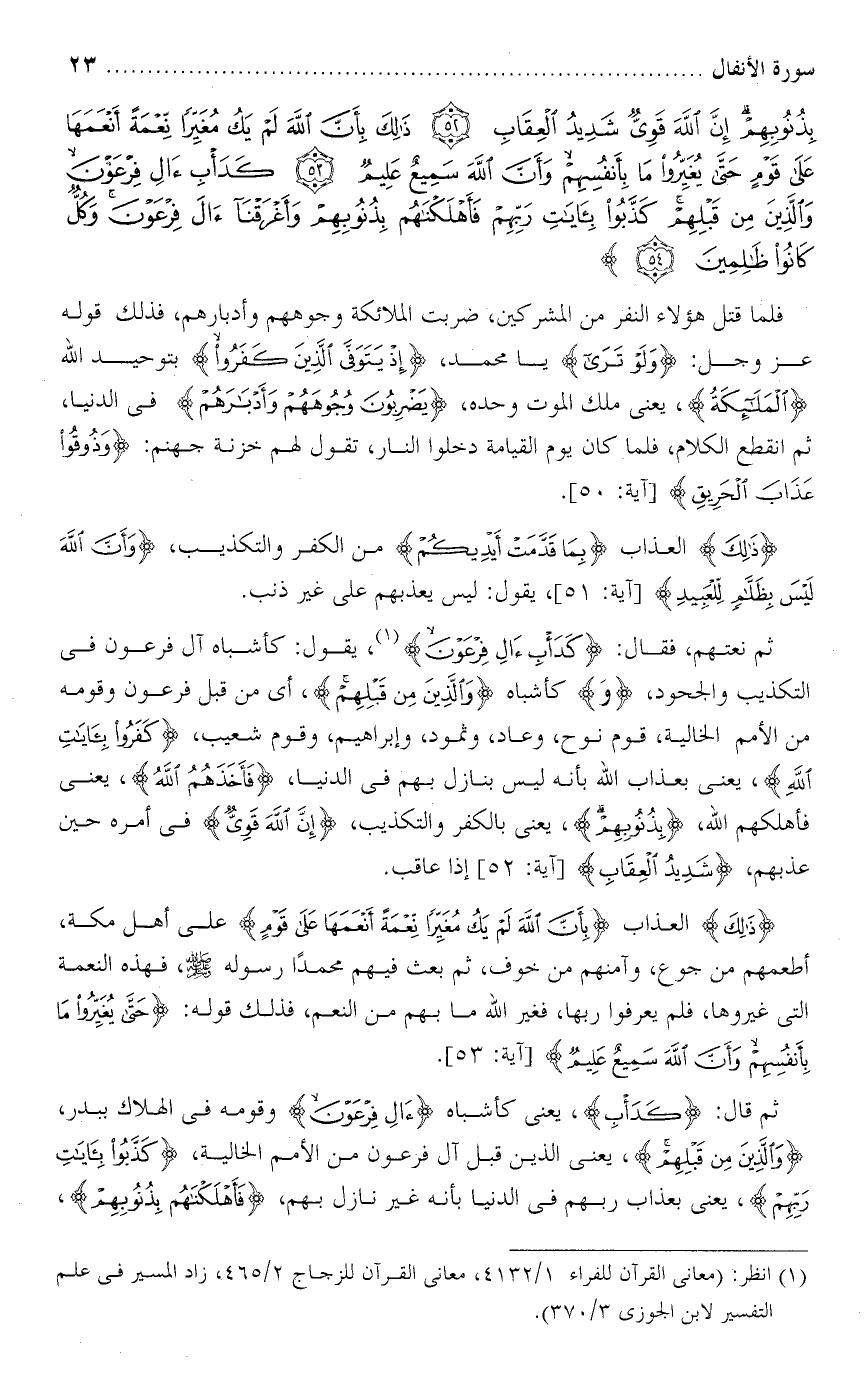 سورة الأنفال ........................................................................ ٢٣
بِذُنُوبِهِمْۗ إِنَّ ٱللَّهَ قَوِىٌّ شَدِيدُ ٱلْعِقَابِ ٥٢ ذَٰلِكَ بِأَنَّ ٱللَّهَ لَمْ يَكُ مُغَيِّرًا نِّعْمَةً أَنْعَمَهَا
عَلَىٰ قَوْمٍ حَتَّىٰ يُغَيِّرُوا۟ مَا بِأَنفُسِهِمْۙ وَأَنَّ ٱللَّهَ سَمِيعٌ عَلِيمٌ ٥٣ كَدَأْبِ ءَالِ فِرْعَوْنَۙ
وَٱلَّذِينَ مِن قَبْلِهِمْۚ كَذَّبُوا۟ بِـَٔايَـٰتِ رَبِّهِمْ فَأَهْلَكْنَـٰهُم بِذُنُوبِهِمْ وَأَغْرَقْنَآ ءَالَ فِرْعَوْنَۚ وَكُلٌّ
كَانُوا۟ ظَـٰلِمِينَ ٥٤ ﴾
فلما قتل هؤلاء النفر من المشركين، ضربت الملائكة وجوههم وأدبارهم، فذلك قوله
عز وجل: ﴿وَلَوْ تَرَىٰٓ﴾ يا محمد، ﴿إِذْ يَتَوَفَّى ٱلَّذِينَ كَفَرُوا۟ۙ﴾ بتوحيد الله
﴿ٱلْمَلَـٰٓئِكَةُ﴾، يعنى ملك الموت وحده، ﴿يَضْرِبُونَ وُجُوهَهُمْ وَأَدْبَـٰرَهُمْ﴾ فى الدنيا،
ثم انقطع الكلام، فلما كان يوم القيامة دخلوا النار، تقول لهم خزنة جهنم: ﴿وَذُوقُوا۟
عَذَابَ ٱلْحَرِيقِ﴾ [آية: ٥٠].
﴿ذَٰلِكَ﴾ العذاب ﴿بِمَا قَدَّمَتْ أَيْدِيكُمْ﴾ من الكفر والتكذيب، ﴿وَأَنَّ ٱللَّهَ
لَيْسَ بِظَلَّـٰمٍ لِّلْعَبِيدِ﴾ [آية: ٥١]، يقول: ليس يعذبهم على غير ذنب.
ثم نعتهم، فقال: ﴿كَدَأْبِ ءَالِ فِرْعَوْنَۙ﴾(١)، يقول: كأشباه آل فرعون فى
التكذيب والجحود، ﴿وَ﴾ كأشباه ﴿وَٱلَّذِينَ مِن قَبْلِهِمْۚ﴾، أى من قبل فرعون وقومه
من الأمم الخالية، قوم نوح، وعاد، وثمود، وإبراهيم، وقوم شعيب، ﴿كَفَرُوا۟ بِـَٔايَـٰتِ
ٱللَّهِ﴾، يعنى بعذاب الله بأنه ليس بنازل بهم فى الدنيا، ﴿فَأَخَذَهُمُ ٱللَّهُ﴾، يعنى
فأهلكهم الله، ﴿بِذُنُوبِهِمْۗ﴾، يعنى بالكفر والتكذيب، ﴿إِنَّ ٱللَّهَ قَوِىٌّ﴾ فى أمره حين
عذبهم، ﴿شَدِيدُ ٱلْعِقَابِ﴾ [آية: ٥٢] إذا عاقب.
﴿ذَٰلِكَ﴾ العذاب ﴿بِأَنَّ ٱللَّهَ لَمْ يَكُ مُغَيِّرًا نِّعْمَةً أَنْعَمَهَا عَلَىٰ قَوْمٍ﴾ على أهل مكة،
أطعمهم من جوع، وآمنهم من خوف، ثم بعث فيهم محمدًا رسوله ﷺ، فهذه النعمة
التى غيروها، فلم يعرفوا ربها، فغير الله ما بهم من النعم، فذلك قوله: ﴿حَتَّىٰ يُغَيِّرُوا۟ مَا
بِأَنفُسِهِمْۙ وَأَنَّ ٱللَّهَ سَمِيعٌ عَلِيمٌ﴾ [آية: ٥٣].
ثم قال: ﴿كَدَأْبِ﴾، يعنى كأشباه ﴿ءَالِ فِرْعَوْنَۙ﴾ وقومه فى الهلاك ببدر،
﴿وَٱلَّذِينَ مِن قَبْلِهِمْۚ﴾، يعنى الذين قبل آل فرعون من الأمم الخالية، ﴿كَذَّبُوا۟ بِـَٔايَـٰتِ
رَبِّهِمْ﴾، يعنى بعذاب ربهم فى الدنيا بأنه غير نازل بهم، ﴿فَأَهْلَكْنَـٰهُم بِذُنُوبِهِمْ﴾،
(١) انظر: (معانى القرآن للفراء ٤١٣٢/١، معانى القرآن للزجاج ٤٦٥/٢، زاد المسير فى علم
التفسير لابن الجوزى ٣٧٠/٣).